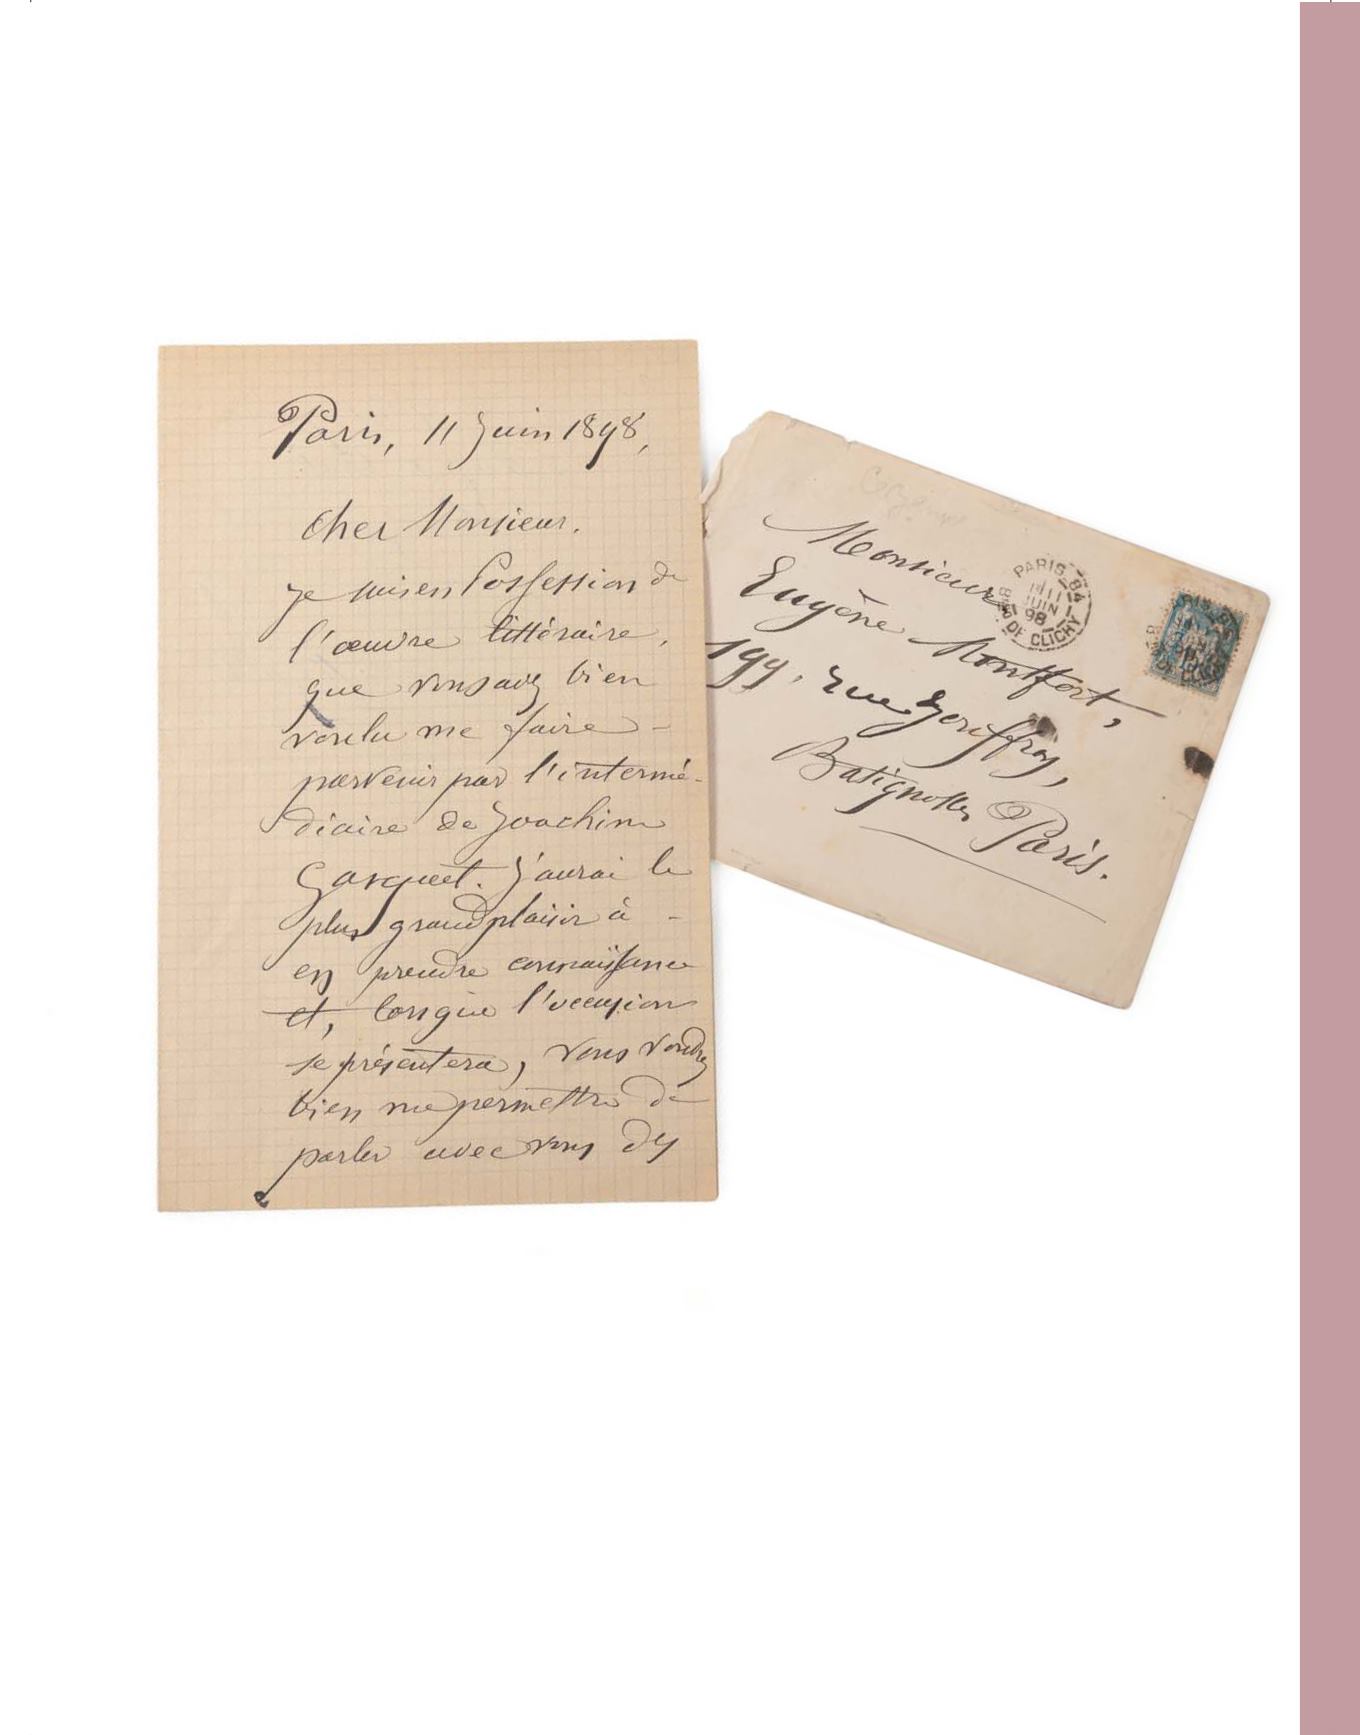 Paris, 11 Juin 1898,
Cher Monsieur.
je suis en Possession de
l'œuvre littéraire,
que vous avez bien
voulu me faire -
parvenir par l'intermé-
diaire de Joachim
Gasquet. J'aurai le
plus grand plaisir à -
en prendre connaissance
et, lorsque l'occasion
se présentera, vous voudrez
bien me permettre de
parler avec vous des
Cézanne
Monsieur
Eugène Montfort,
199, rue
Batignolles Paris.
PARIS 84
11
JUIN
98
DE CLICHY